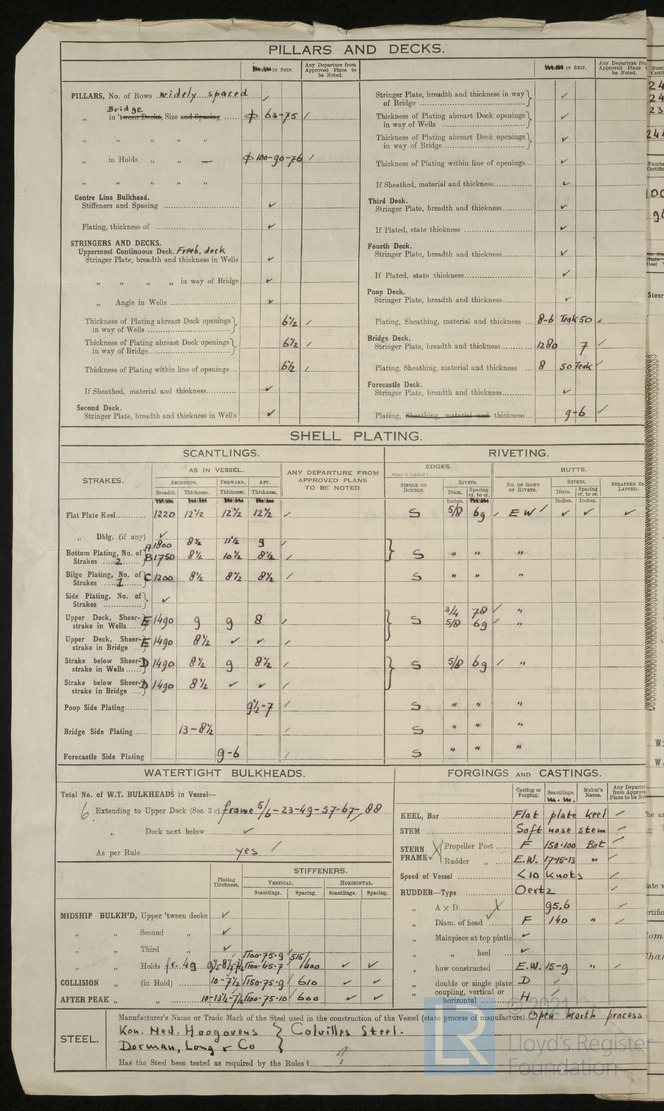 PILLARS AND DECKS.
IN SHIP.
Any Departure from Approved Plans to be Noted.
IN SHIP.
Any Departure from Approved Plans to be Noted.
PILLARS, No. of Rows widely spaced
Bridge
„ in 'tween Decks, Size and Spacing ...... ϕ 63-75
„ „ „ „
„ in Holds „ „ — ϕ 100-90-76
„ „ „ „
Centre Line Bulkhead.
Stiffeners and Spacing ✓
Plating, thickness of ✓
STRINGERS AND DECKS.
Uppermost Continuous Deck. Freeb. deck
Stringer Plate, breadth and thickness in Wells ✓
„ „ „ „ in way of Bridge ✓
„ Angle in Wells ✓
Thickness of Plating abreast Deck openings in way of Wells } 6½
Thickness of Plating abreast Deck openings in way of Bridge } 6½
Thickness of Plating within line of openings ... 6½
If Sheathed, material and thickness ✓
Second Deck.
Stringer Plate, breadth and thickness in Wells ✓
Stringer Plate, breadth and thickness in way of Bridge } ✓
Thickness of Plating abreast Deck openings in way of Wells } ✓
Thickness of Plating abreast Deck openings in way of Bridge } ✓
Thickness of Plating within line of openings... ✓
If Sheathed, material and thickness ✓
Third Deck.
Stringer Plate, breadth and thickness ✓
If Plated, state thickness ✓
Fourth Deck.
Stringer Plate, breadth and thickness ✓
If Plated, state thickness ✓
Poop Deck.
Stringer Plate, breadth and thickness ✓
Plating, Sheathing, material and thickness ... 8-6 Teak 50
Bridge Deck.
Stringer Plate, breadth and thickness 1280 7
Plating, Sheathing, material and thickness ... 8 50 Teak
Forecastle Deck.
Stringer Plate, breadth and thickness ✓
Plating, Sheathing, material and thickness ... 9-6
SHELL PLATING.
SCANTLINGS.
RIVETING.
STRAKES.
AS IN VESSEL.
ANY DEPARTURE FROM APPROVED PLANS TO BE NOTED.
EDGES.
BUTTS.
AMIDSHIPS. FORWARD. AFT.
Breadth. Thickness. Thickness. Thickness.
SINGLE OR DOUBLE. RIVETS. Diam. Spacing cr. to cr. NO. OF ROWS OF RIVETS. RIVETS. Diam. Spacing cr. to cr. STRAPPED OR LAPPED.
Inches. Inches. Inches. Inches.
Flat Plate Keel 1220 12½ 12½ 12½ S 5/8 69 EW ✓ ✓ ✓
„ Dblg. (if any) ✓
Bottom Plating, No. of Strakes 2 } A 1800 8½ 11½ 9
B 1750 8½ 10½ 8½ S „ „ „
Bilge Plating, No. of Strakes 1 } C 1200 8½ 8½ 8½ S „ „ „
Side Plating, No. of Strakes ✓
Upper Deck, Sheer-strake in Wells E 1490 9 9 8 S 3/4 78 „
5/8 69 „
Upper Deck, Sheer-strake in Bridge E 1490 8½ ✓ ✓
Strake below Sheer-strake in Wells D 1490 8½ 9 8½ S 5/8 69 „
Strake below Sheer-strake in Bridge D 1490 8½ ✓ ✓
Poop Side Plating 9½-7 S „ „ „
Bridge Side Plating 13-8½ S „ „ „
Forecastle Side Plating 9-6 S „ „ „
WATERTIGHT BULKHEADS.
Total No. of W.T. BULKHEADS in Vessel—
6 Extending to Upper Deck (Sec. 3 c) frame 5/6-23-49-57-67-88
„ Deck next below ✓
As per Rule yes
STIFFENERS.
Plating Thickness. VERTICAL. HORIZONTAL.
Scantlings. Spacing. Scantlings. Spacing.
MIDSHIP BULKH'D, Upper 'tween decks ✓
„ „ Second „ ✓
„ „ Third „ ✓
„ „ Holds fr. 49 600 ✓ ✓
COLLISION „ (in Hold) 10-7½ 150-75-9 610 ✓ ✓
AFTER PEAK „ „ 100-75-10 600 ✓ ✓
FORGINGS AND CASTINGS.
Casting or Forging. Scantlings. Maker's Name. Any Departure from Approved Plans to be Noted
KEEL, Bar Flat plate keel
STEM Soft nose stem
STERN FRAME { Propeller Post F 150·100 Bot
Rudder „ E.W. 17-15-13 „
Speed of Vessel <10 knots
RUDDER—Type Oertz
„ A × D 95.6
„ Diam. of head F 140 „
„ Mainpiece at top pintle ✓
„ „ heel ✓
„ how constructed E.W. 15-9 „
„ double or single plate D
„ coupling, vertical or horizontal H
STEEL.
Manufacturer's Name or Trade Mark of the Steel used in the construction of the Vessel (state process of manufacture). Open hearth process
Kon. Ned. Hoogovens } Colvilles Steel.
Dorman, Long & Co }
Has the Steel been tested as required by the Rules?
© 2021
LR
Lloyd's Register
Foundation